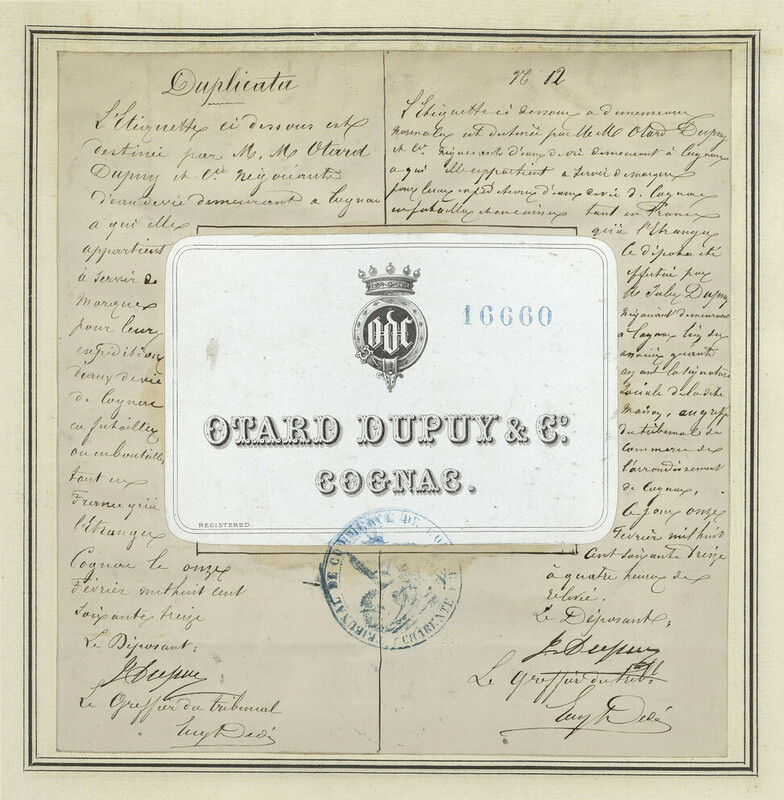 Duplicata
L'Etiquette ci dessous est
destinée par M. M Otard
Dupuy et Cie Négociants
d'eau de vie demeurant a Cognac
a qui elle
appartient
à servir de
Marques
pour leurs
expéditions
d'eaux de vie
de Cognac
en futailles
ou en bouteilles
tant en
France qu'à
l'Etranger
Cognac le onze
Février mil huit cent
soixante treize
Le Déposant:
J. Dupuy
Le Greffier du tribunal
N 12
L'Etiquette ci dessous a dimensions
normales est destinée par M. M Otard Dupuy
et Cie Négociants d'eaux de vie demeurant à Cognac
a qui elle appartient a servir de marques
pour leurs expéditions d'eaux de vie de Cognac
en futailles et en caisses tant en France
qu'à l'Etranger
Le dépot a été
effectué par
M Jules Dupuy
Négociant demeurant
à Cognac l'un des
associés gérants
ayant la signature
sociale de la dite
Maison, au greffe
du tribunal de
commerce de
l'arrondissement
de Cognac,
le jour onze
Février mil huit
Cent soixante treize
à quatre heures de
relevée.
Le Déposant,
J. Dupuy
Le greffier du trib.
ODC
16660
OTARD DUPUY & Co.
COGNAC.
REGISTERED
TRIBUNAL DE COMMERCE DE CO
CHARENTE